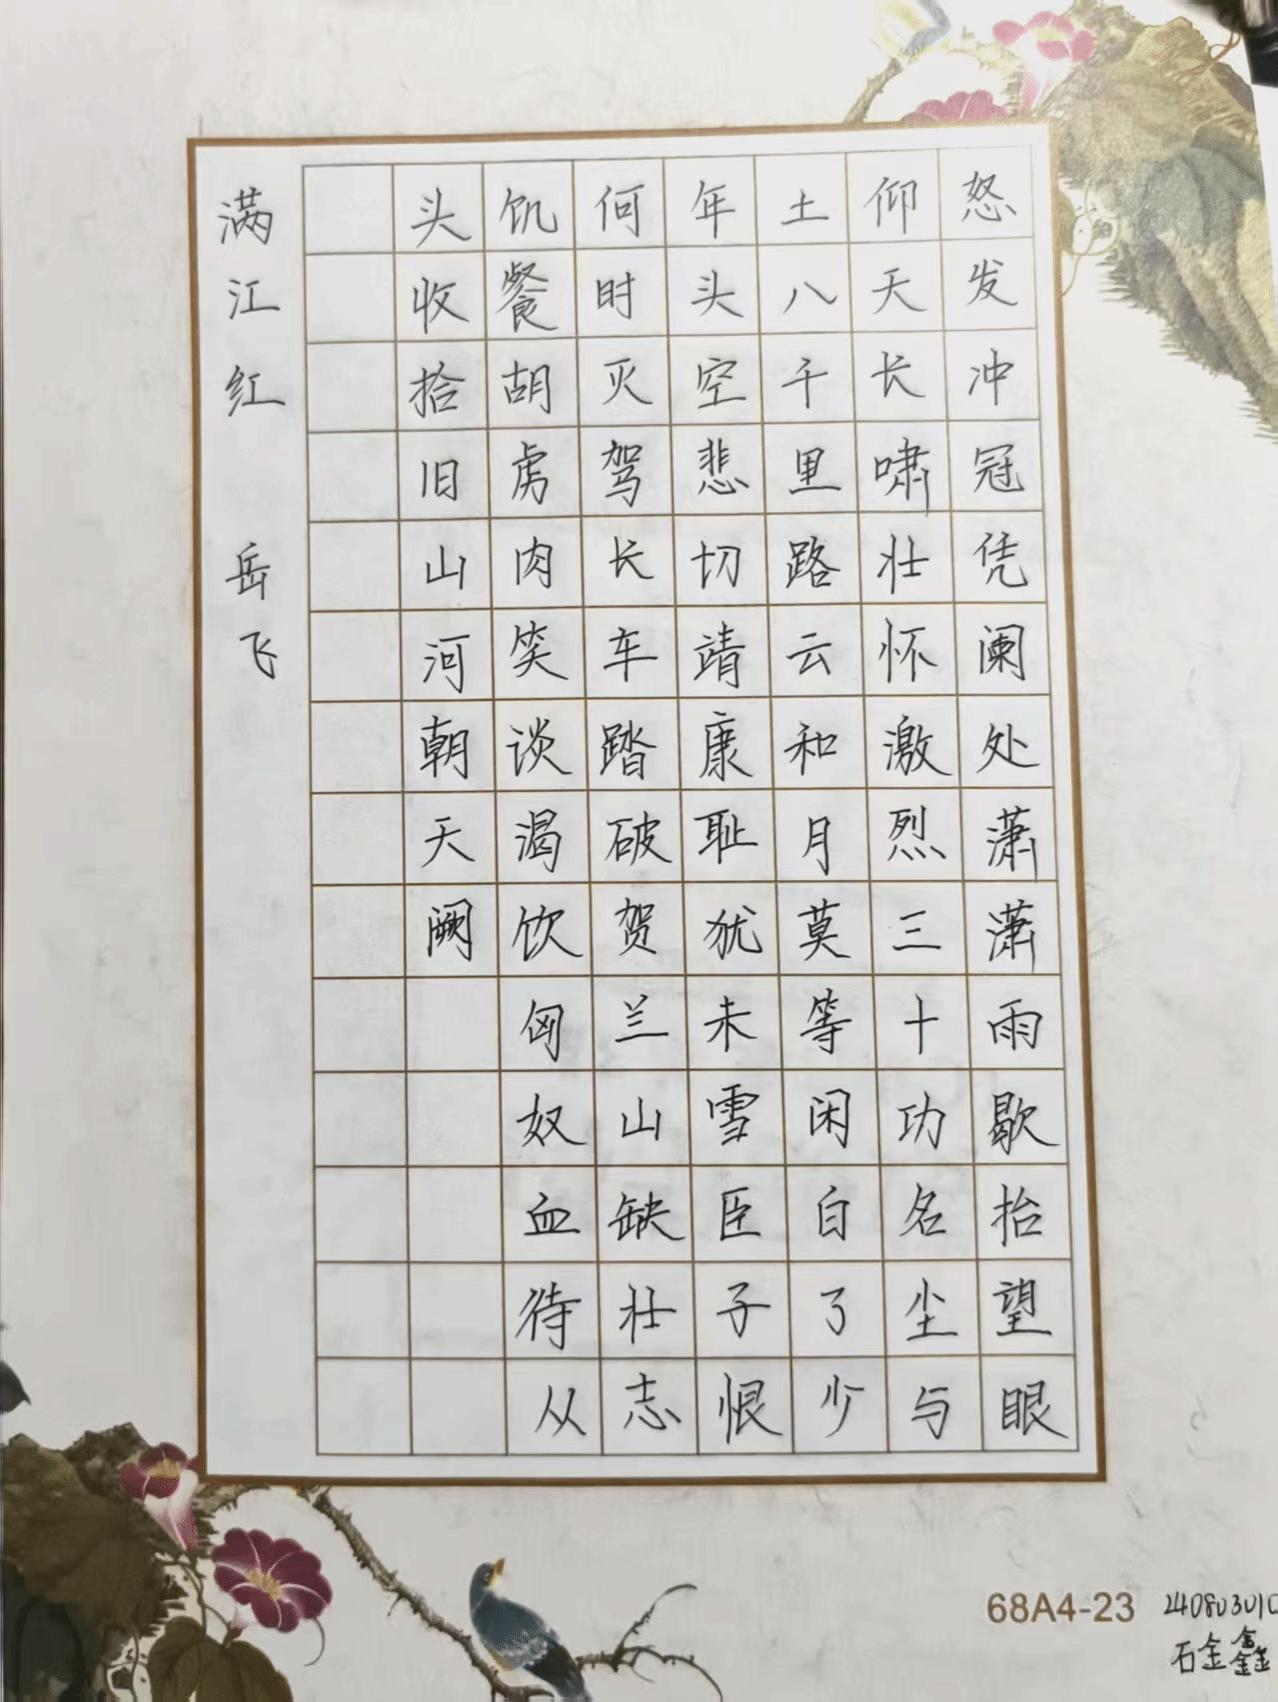 怒发冲冠凭阑处潇潇雨歇抬望眼
仰天长啸壮怀激烈三十功名尘与
土八千里路云和月莫等闲白了少
年头空悲切靖康耻犹未雪臣子恨
何时灭驾长车踏破贺兰山缺壮志
饥餐胡虏肉笑谈渴饮匈奴血待从
头收拾旧山河朝天阙
满江红 岳飞
68A4-23
石金鑫